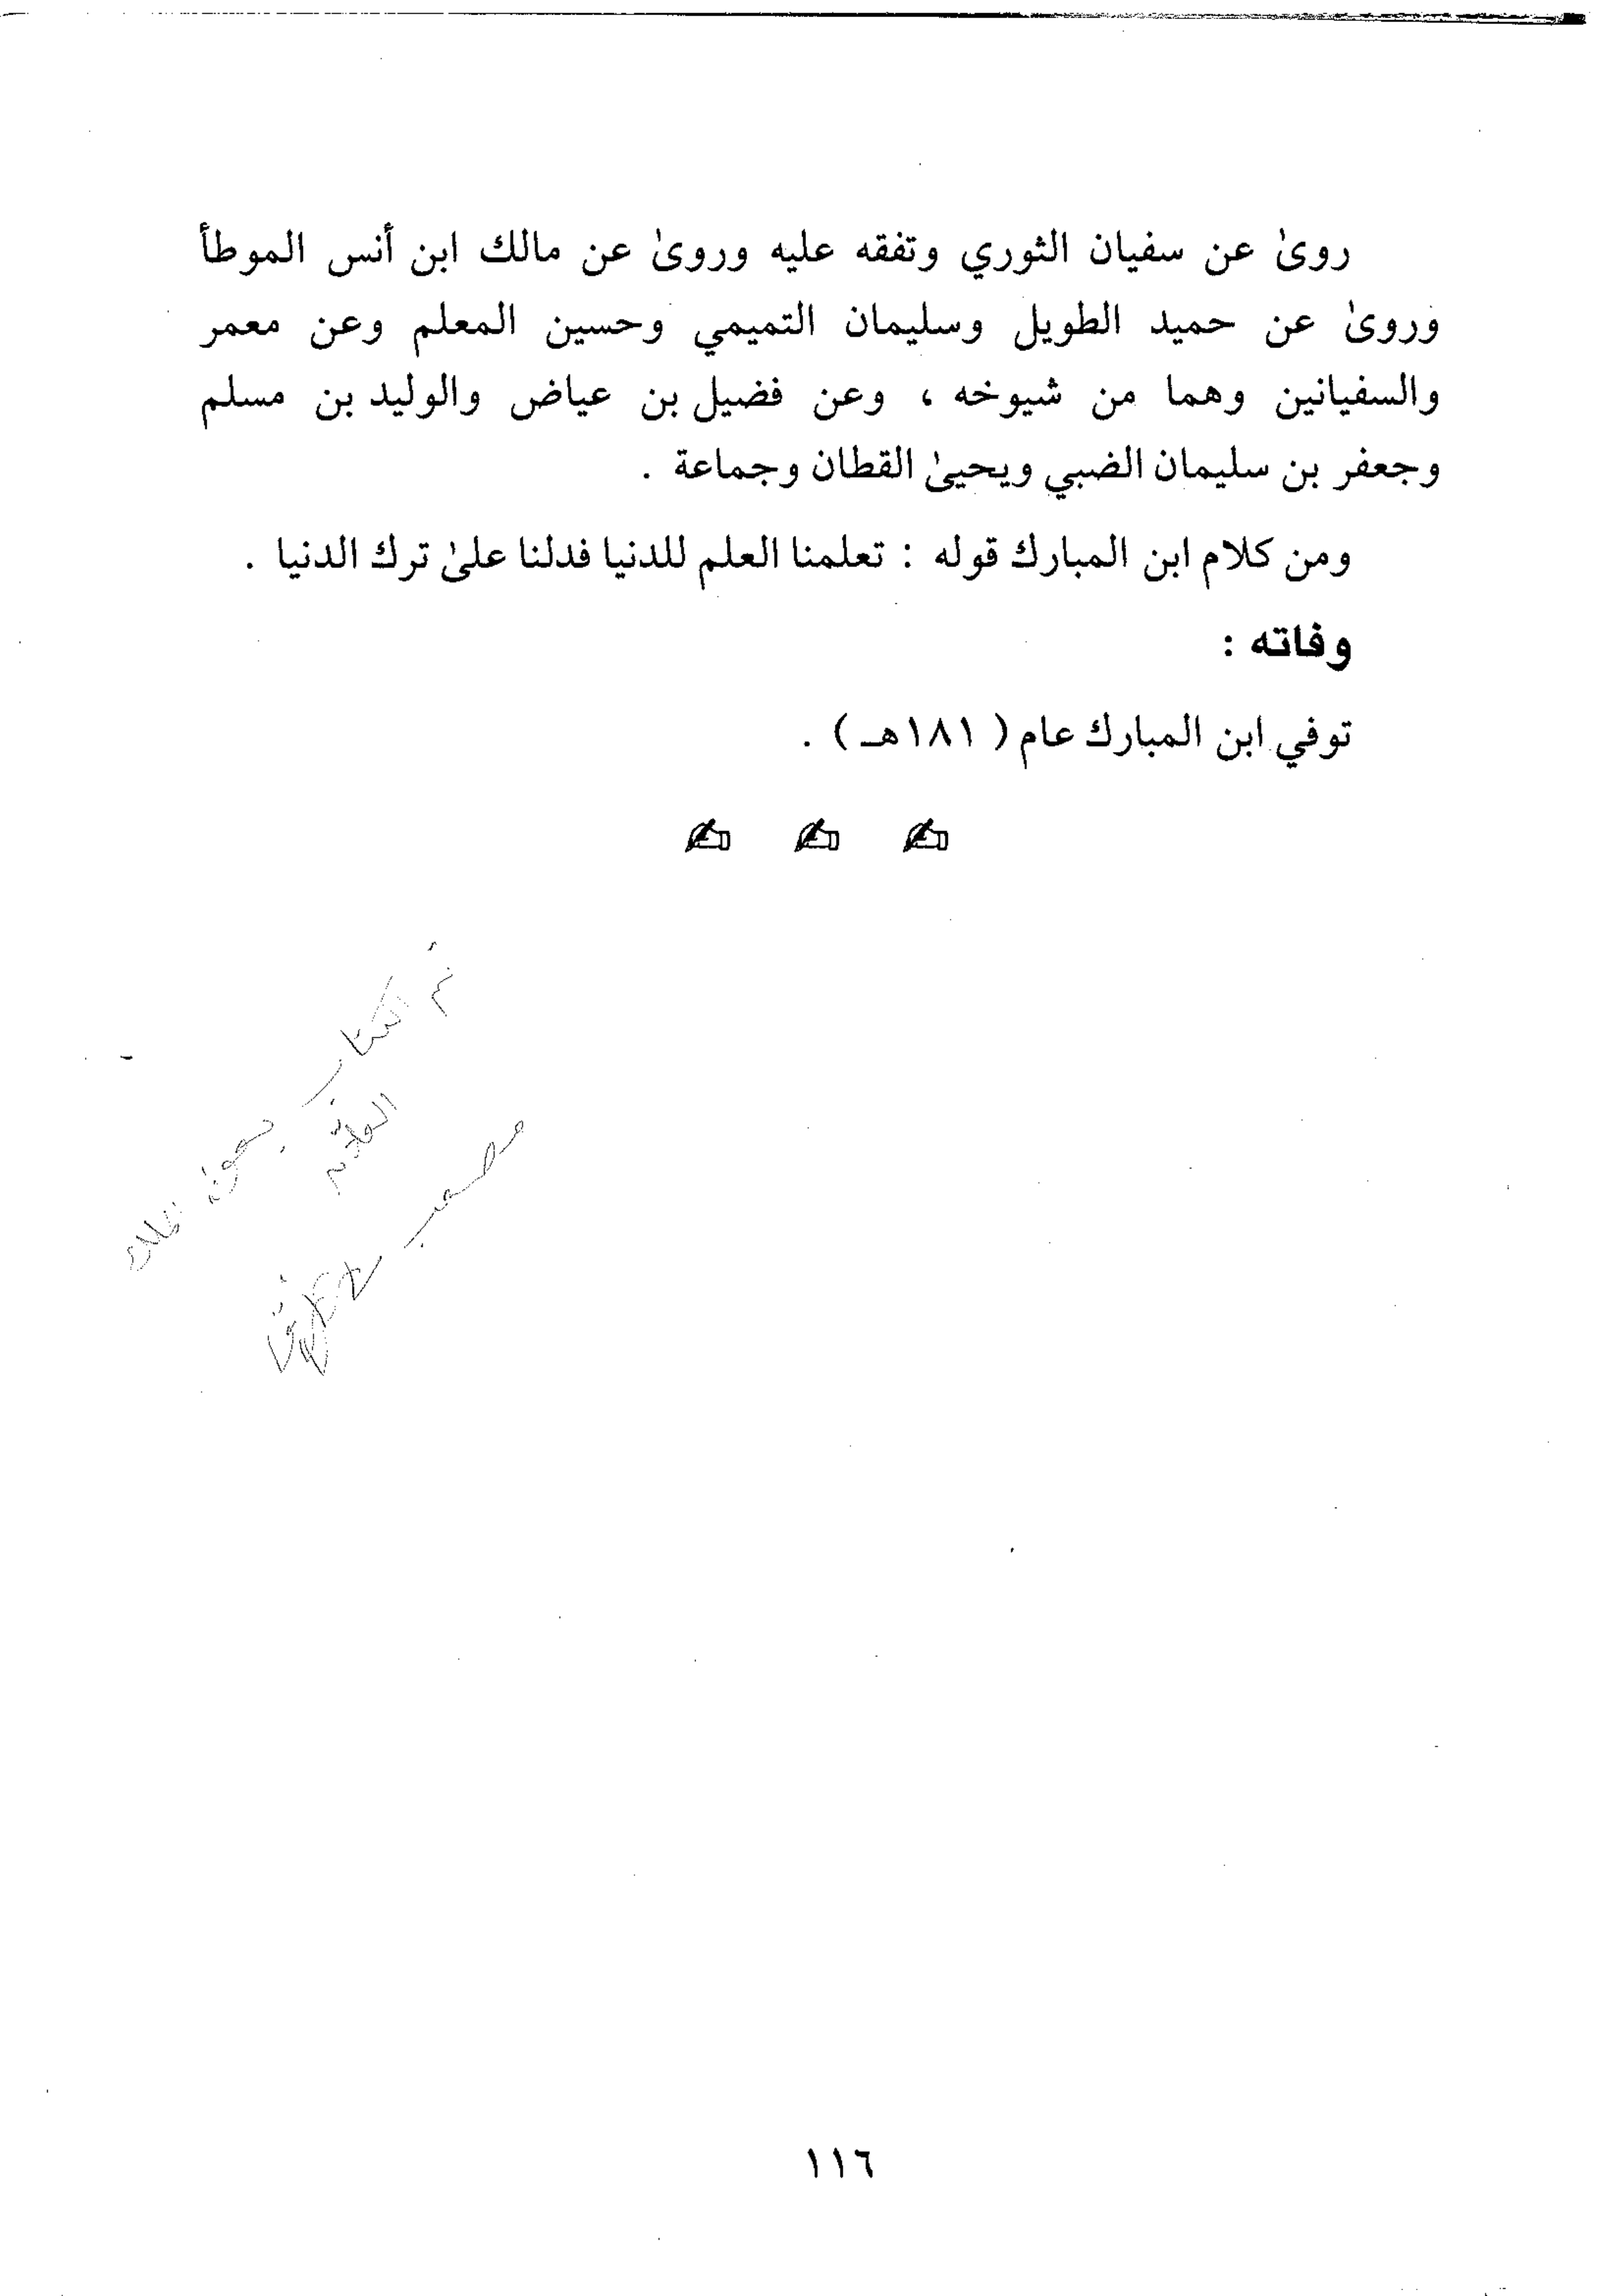 روىٰ عن سفيان الثوري وتفقه عليه وروىٰ عن مالك ابن أنس الموطأ
وروىٰ عن حميد الطويل وسليمان التميمي وحسين المعلم وعن معمر
والسفيانين وهما من شيوخه ، وعن فضيل بن عياض والوليد بن مسلم
وجعفر بن سليمان الضبي ويحيىٰ القطان وجماعة .
ومن كلام ابن المبارك قوله : تعلمنا العلم للدنيا فدلنا علىٰ ترك الدنيا .
وفاته :
توفي ابن المبارك عام ( ١٨١هـ ) .
تم الكتاب بعون الملك
العلام
مصعب
١١٦